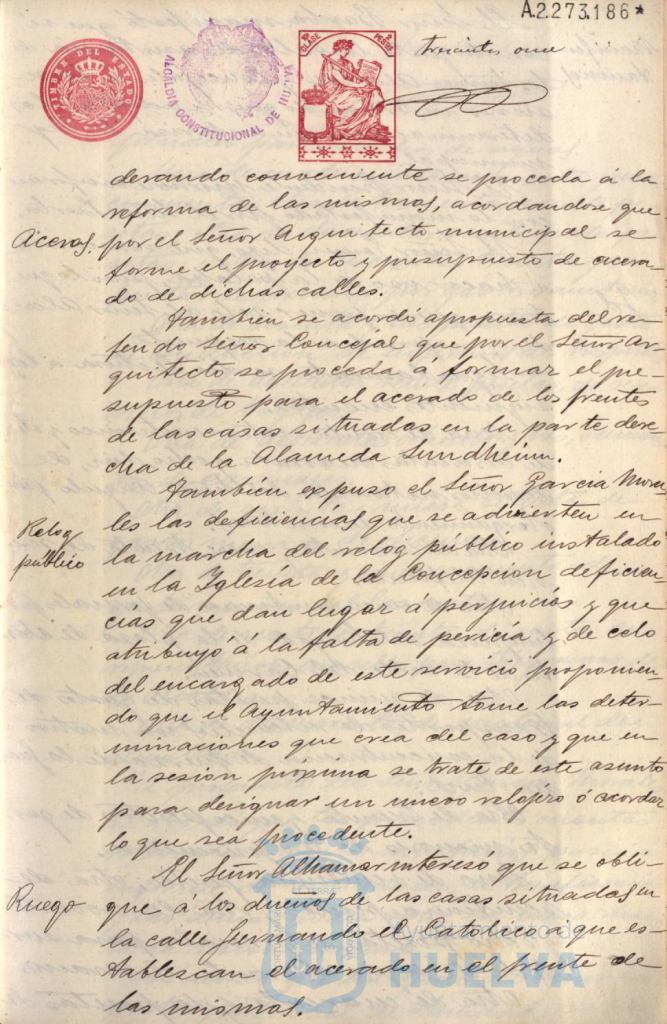 A.2.273.186*
TIMBRE DEL ESTADO
ALCALDIA CONSTITUCIONAL DE HUELVA
CLASE PESETAS
trescientos once
derando conveniente se proceda á la
reforma de las mismas, acordandose que
Aceras.
por el Señor Arquitecto municipal se
forme el proyecto y presupuesto de acera-
do de dichas calles.
Tambien se acordó a propuesta del re-
ferido Señor Concejal que por el Señor Ar-
quitecto se proceda á formar el pre-
supuesto para el acerado de los frentes
de las casas situadas en la parte dere-
cha de la Alameda Sundheim.
Tambien expuso el Señor Garcia Mora-
les las deficiencias que se advierten en
Relog
público
la marcha del relog público instalado
en la Iglesia de la Concepcion deficien-
cias que dan lugar á perjuicios y que
atribuyó á la falta de pericia y de celo
del encargado de este servicio proponien-
do que el Ayuntamiento tome las deter-
minaciones que crea del caso y que en
la sesion próxima se trate de este asunto
para designar un nuevo relojero ó acordar
lo que sea procedente.
El Señor Alhamar interesó que se obli-
Ruego
gue á los dueños de las casas situadas en
la calle Fernando el Catolico a que es-
tablescan el acerado en el frente de
las mismas.
HUELVA